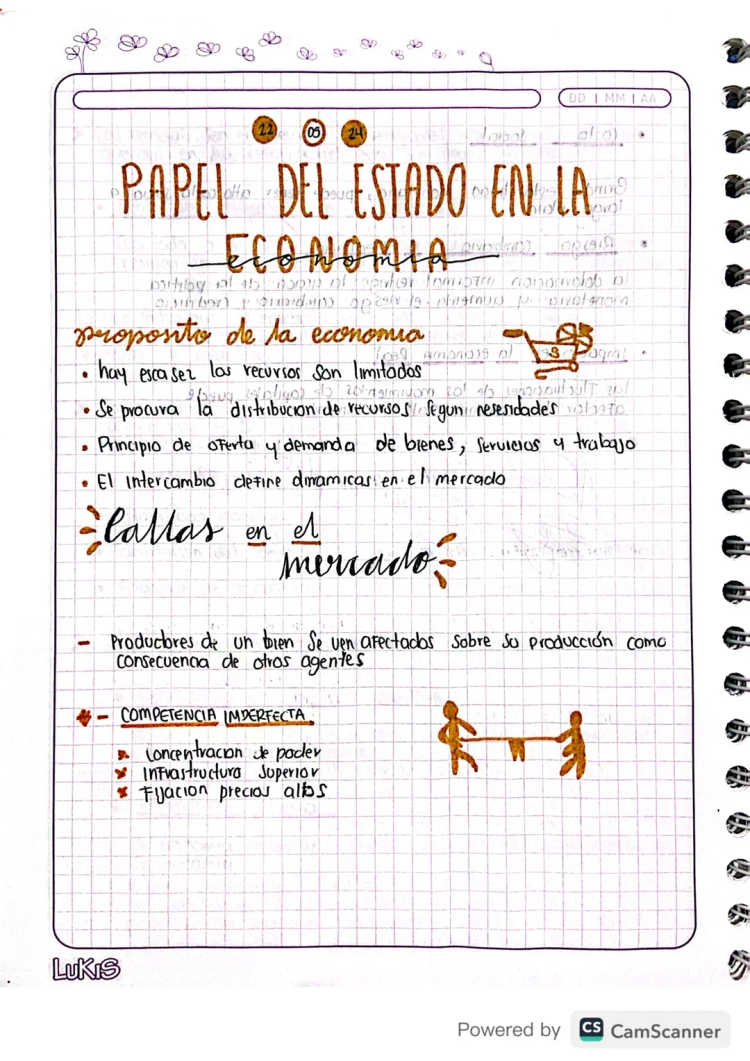 DD | MM | AA
22 05 24
PAPEL DEL ESTADO EN LA
ECONOMIA
economia
proposito de la economia
$
• hay escasez los recursos son limitados
• Se procura la distribucion de recursos segun nesesidades
• Principio de oferta y demanda de bienes, servicios y trabajo
• El intercambio define dinamicas en el mercado
fallas en el
mercado
- Productores de un bien se ven afectados sobre su producción como
consecuencia de otros agentes
- COMPETENCIA IMPERFECTA
x concentracion de poder
x infraestructura superior
x fijacion precios altos
LUKIS
Powered by CS CamScanner